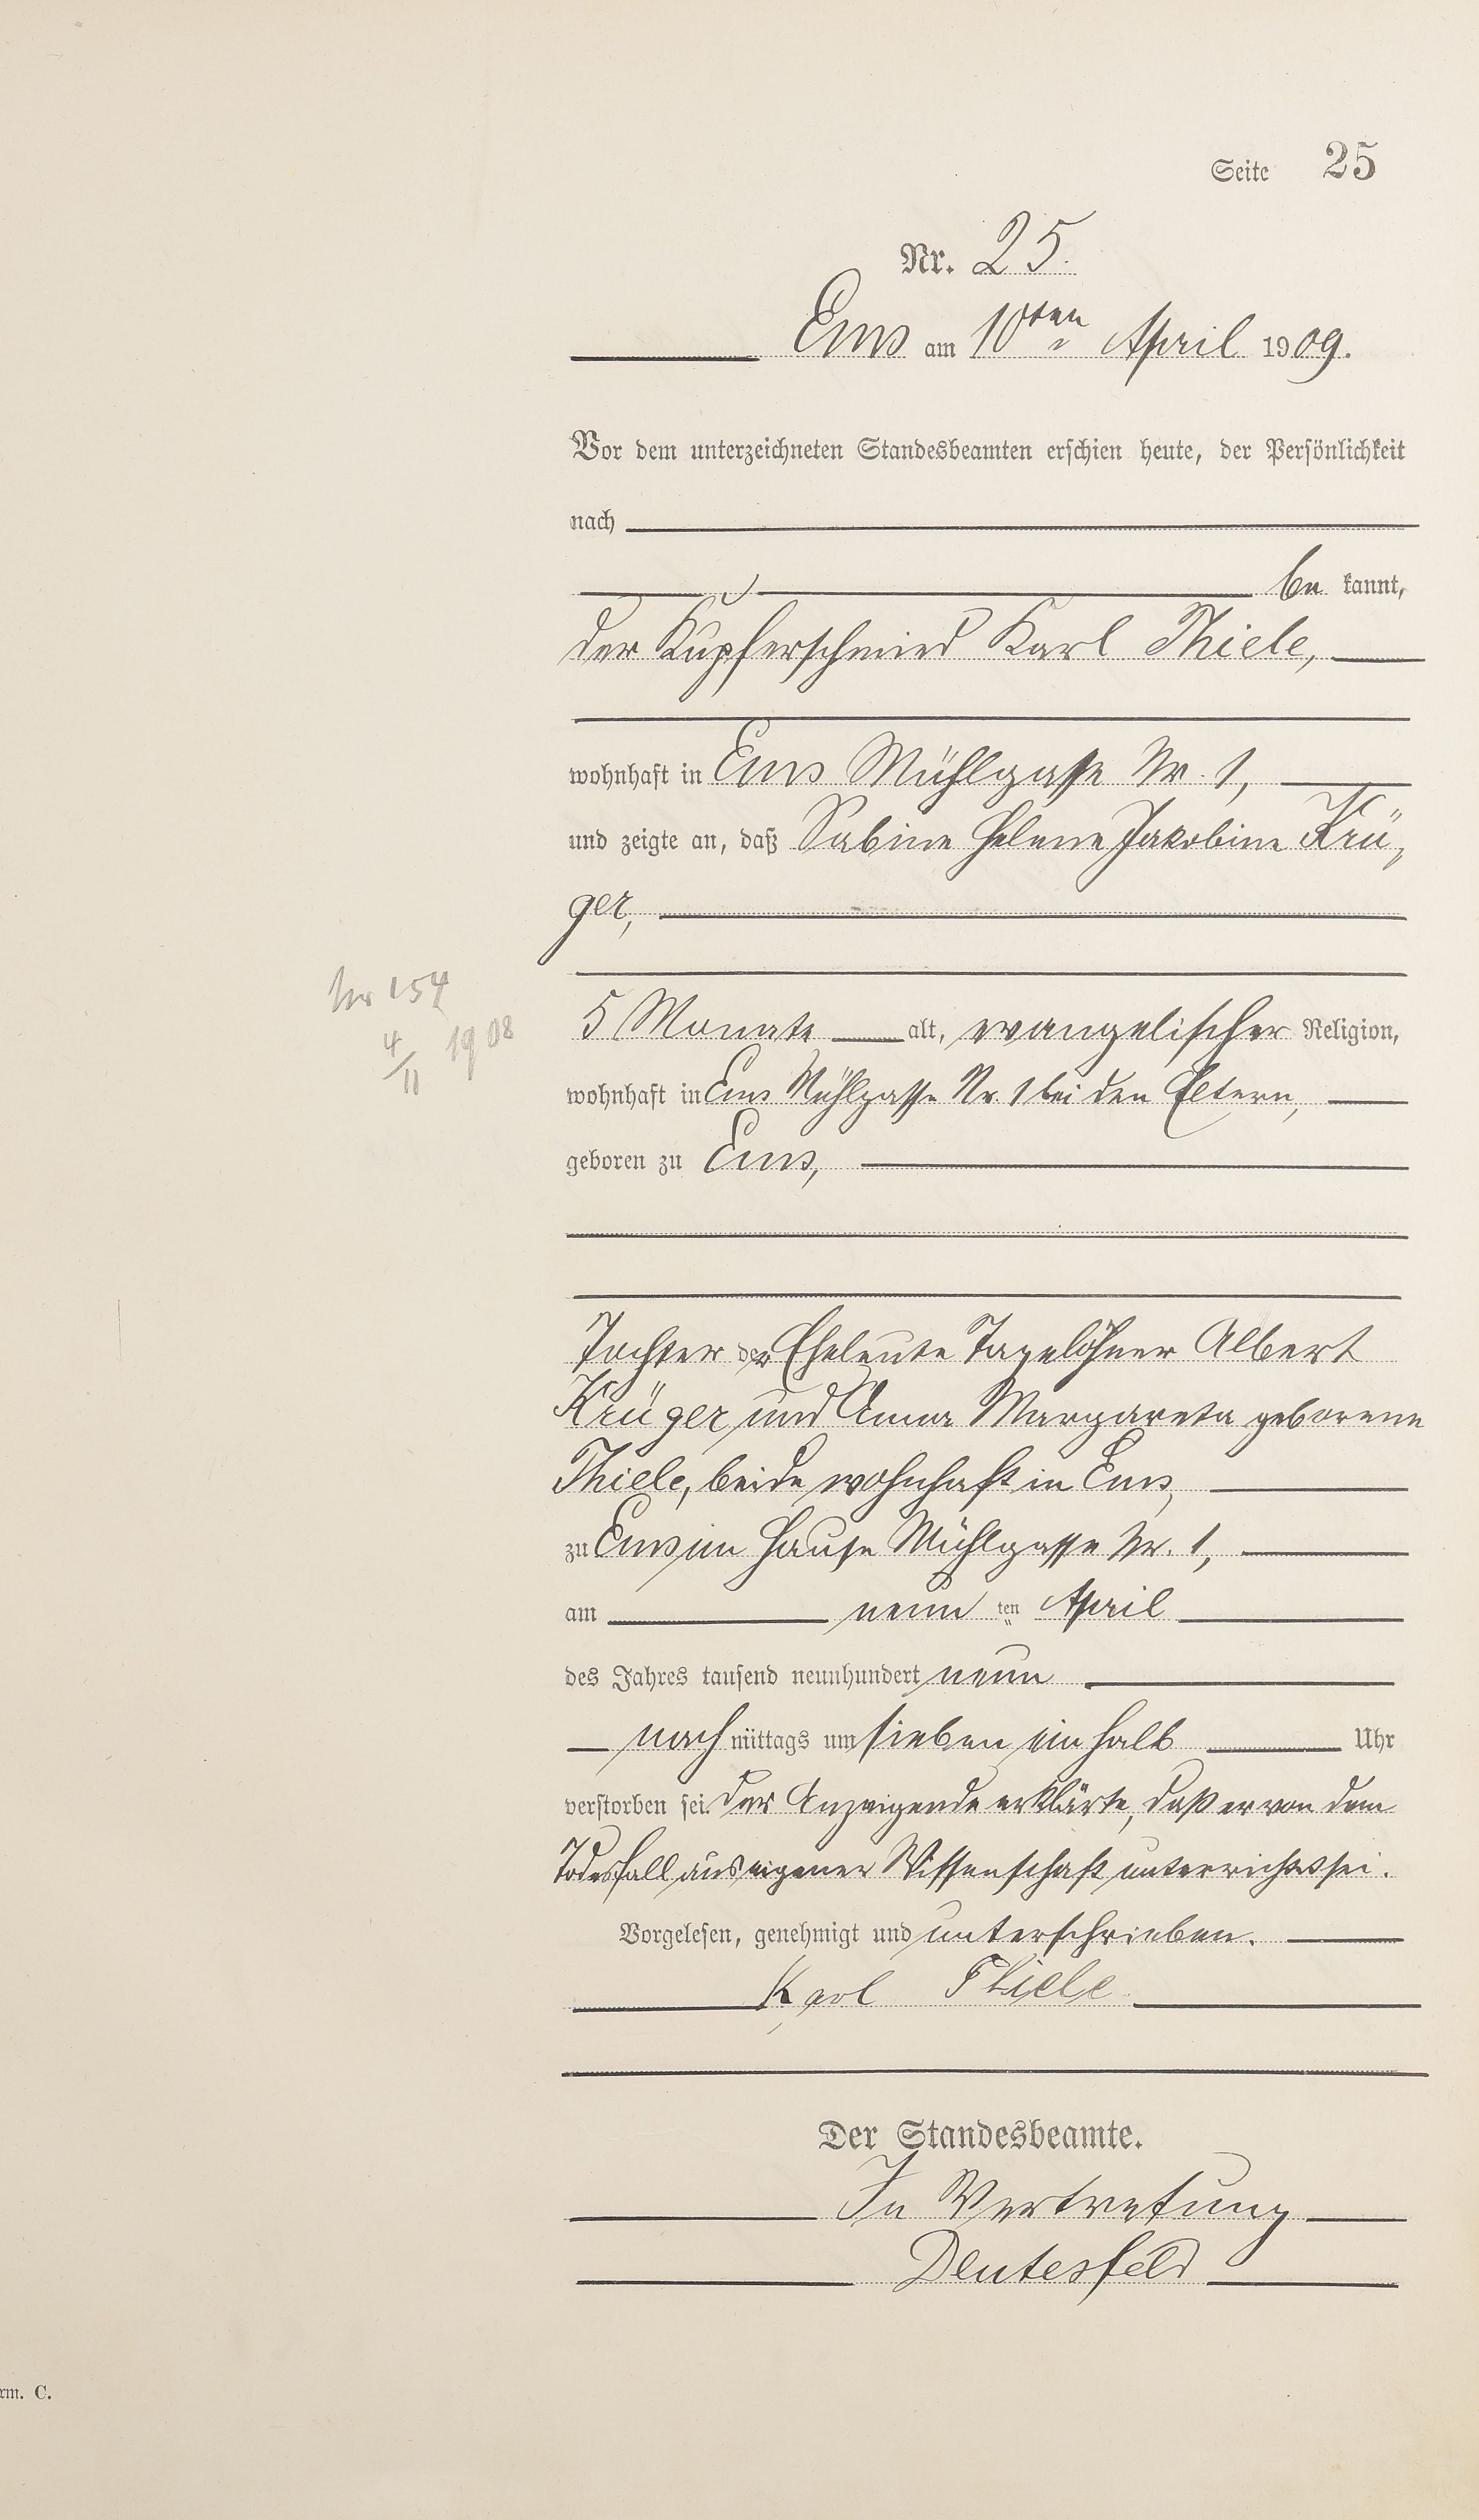 Seite 25
Nr. 25.
Ems am 10ten April 1909.
Vor dem unterzeichneten Standesbeamten erschien heute, der Persönlichkeit
nach
be kannt,
der Kupferschmied Karl Thiele,
wohnhaft in Ems Mühlgasse Nr. 1,
und zeigte an, daß Sabine Helene Jakobine Krü-
ger,
Nr 154
4/11 1908
5 Monate alt, evangelischer Religion,
wohnhaft in Ems Mühlgasse Nr. 1 bei den Eltern,
geboren zu Ems,
Tochter der Eheleute Tagelöhner Albert
Krüger und Anna Margareta geborene
Thiele, beide wohnhaft in Ems,
zu Ems im Hause Mühlgasse Nr. 1,
am neun ten April
des Jahres tausend neunhundert neun
nach mittags um sieben ein halb Uhr
verstorben sei. Der Anzeigende erklärte, daß er von dem
Todesfall aus eigener Wissenschaft unterrichtet sei.
Vorgelesen, genehmigt und unterschrieben.
Karl Thiele
Der Standesbeamte.
In Vertretung
Deutesfeld
rm. C.